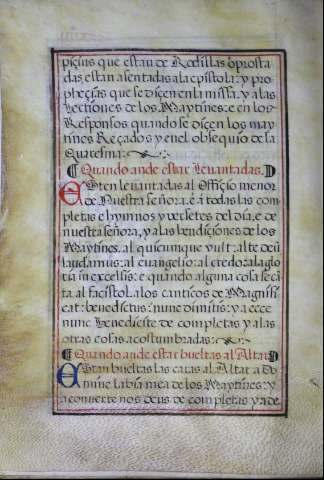 piçius que estan de Rodillas o prosta
das, estan asentadas a la epistola: y pro
pheçias que se diçen en la missa, y a las
lectiones de los Maytines: e en los
Responsos quando se diçen los may
tines Reçados y en el obsequio de la
Quaresma:
Quando ande estar levantadas.
Esten levantadas al Offiçio menor
de Nuestra señora. e a todas las com
pletas e hymnos y versetes del dia, e de
nuestra señora, y a las bendiciones de los
Maytines. al quicumque vult: al te deū
laudamus: al evangelio: al credo: al a glo
ria in excelsis: e quando alguna cosa se cā
ta al façistol. a los canticos de Magnifi
cat: benedictus: nunc dimitis: y a ecce
nunc benedicite de completas y a las
otras cosas acostumbradas:
Quando ande estar bueltas al Altar
Estan bueltas las caras al Altar a do
mine labia mea de los Maytines: y
a converte nos deus de completas y a de